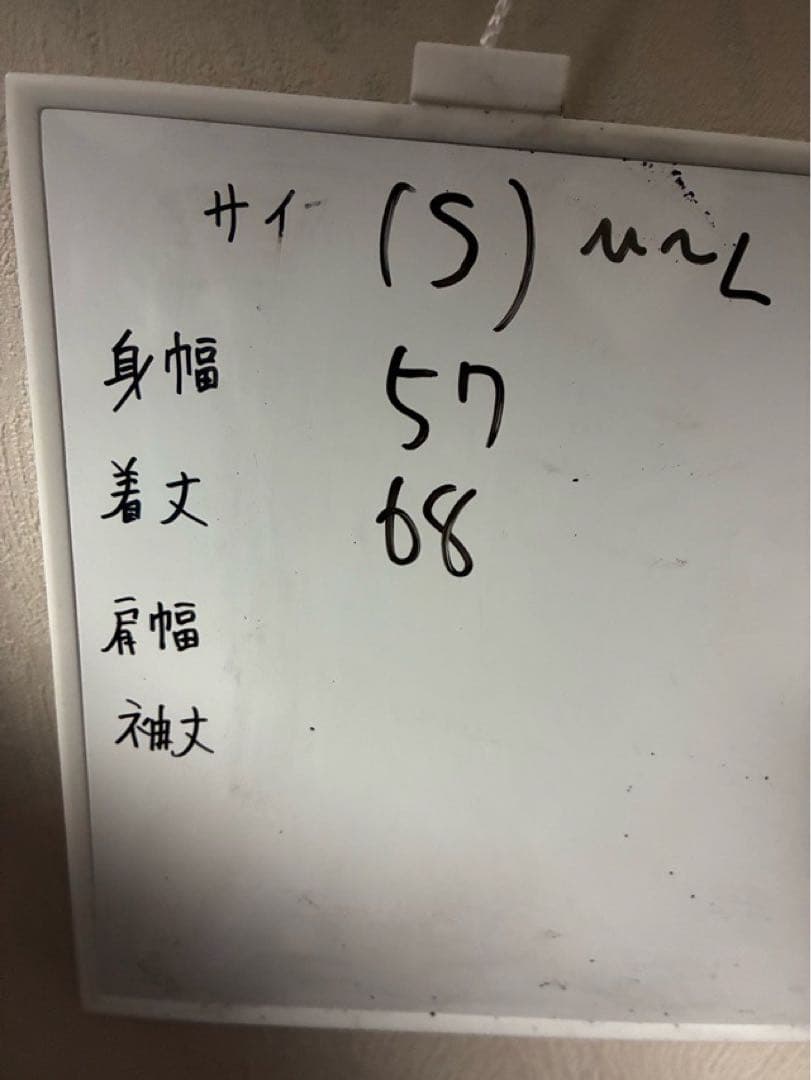 サイ (S) M~L
身幅 57
着丈 68
肩幅
袖丈